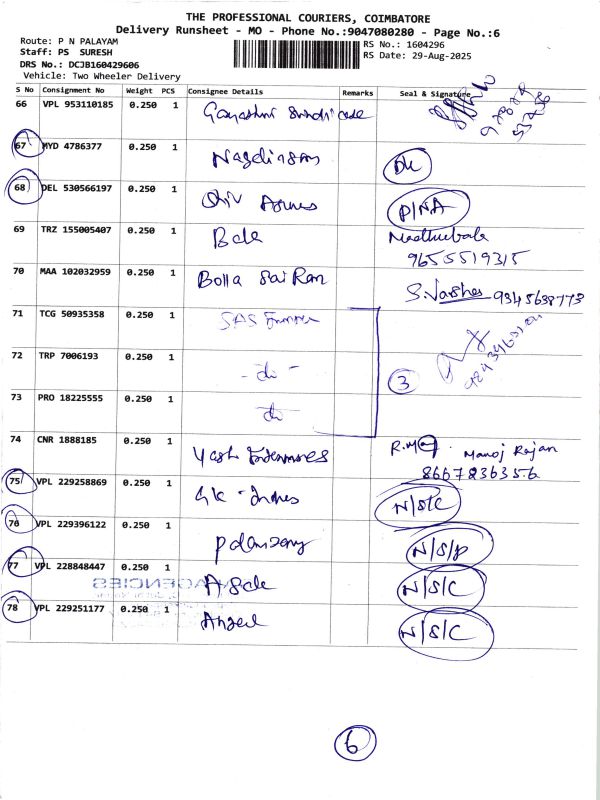 THE PROFESSIONAL COURIERS, COIMBATORE
Delivery Runsheet - MO - Phone No.:9047080280 - Page No.:6
Route: P N PALAYAM
Staff: PS SURESH
DRS No.: DCJB160429606
Vehicle: Two Wheeler Delivery
RS No.: 1604296
RS Date: 29-Aug-2025
S No Consignment No Weight PCS Consignee Details Remarks Seal & Signature
66 VPL 953110185 0.250 1
67 MYD 4786377 0.250 1
68 DEL 530566197 0.250 1 P/NA
69 TRZ 155005407 0.250 1 Madhubala
9655519315
70 MAA 102032959 0.250 1 Bolla Sai Ram S.Varsha 9345638773
71 TCG 50935358 0.250 1 SAS
72 TRP 7006193 0.250 1 - do - 3
73 PRO 18225555 0.250 1 do
74 CNR 1888185 0.250 1 Manoj Rajan
8667236356
75 VPL 229258869 0.250 1 N/S/C
76 VPL 229396122 0.250 1 N/S/P
77 VPL 228848447 0.250 1 N/S/C
AGENCIES
78 VPL 229251177 0.250 1 N/S/C
6